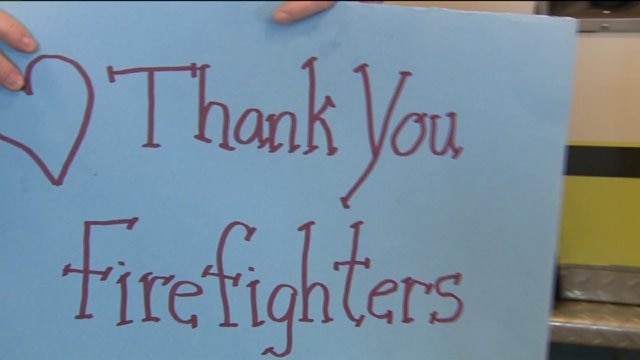 Thank You
Firefighters